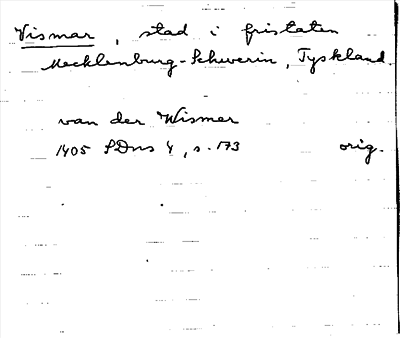 Vismar, stad i fristaten
Mecklenburg-Schwerin, Tyskland.
van der Wismer
1405 SDns 4, s. 173 orig.